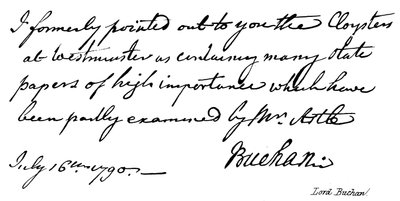 I formerly pointed out to you the Cloysters
at Westminster as containing many State
papers of high importance which have
been partly examined by Mr. Astle
Buchan
July 16th 1790.
Lord Buchan.